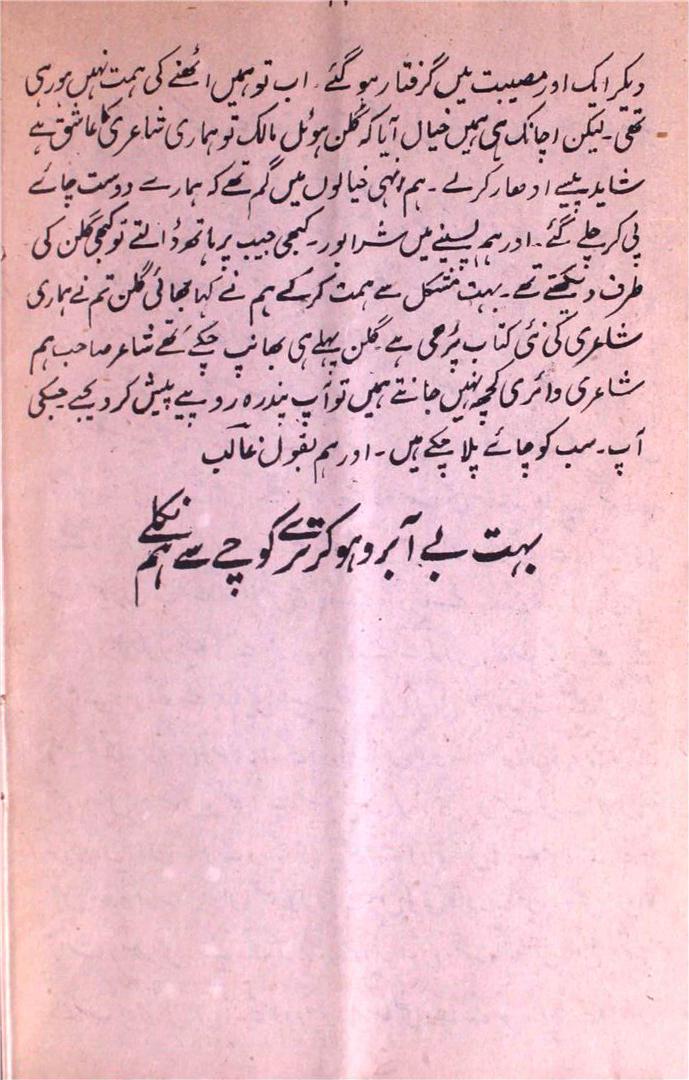 دیکر ایک اور مصیبت میں گرفتار ہو گئے۔ اب تو ہمیں اٹھنے کی ہمت نہیں ہو رہی
تھی۔ لیکن اچانک ہی ہمیں خیال آیا کہ گلن ہوٹل مالک تو ہماری شاعری کا عاشق ہے
شاید پیسے ادھار کر لے۔ ہم انہی خیالوں میں گم تھے کہ ہمارے دوست چائے
پی کر چلے گئے۔ اور ہم پسینے میں شرابور۔ کبھی جیب پر ہاتھ ڈالتے تو کبھی گلن کی
طرف دیکھتے تھے۔ بہت مشکل سے ہمت کر کے ہم نے کہا بھائی گلن تم نے ہماری
شاعری کی نئی کتاب پڑھی ہے گلن پہلے ہی بھانپ چکے تھے شاعر صاحب ہم
شاعری وائری کچھ نہیں جانتے ہمیں تو آپ پندرہ روپیے پیش کر دیجیے جسکی
آپ۔ سب کو چائے پلا چکے ہیں۔ اور ہم بقول غالب
بہت بے آبرو ہو کر ترے کوچے سے ہم نکلے